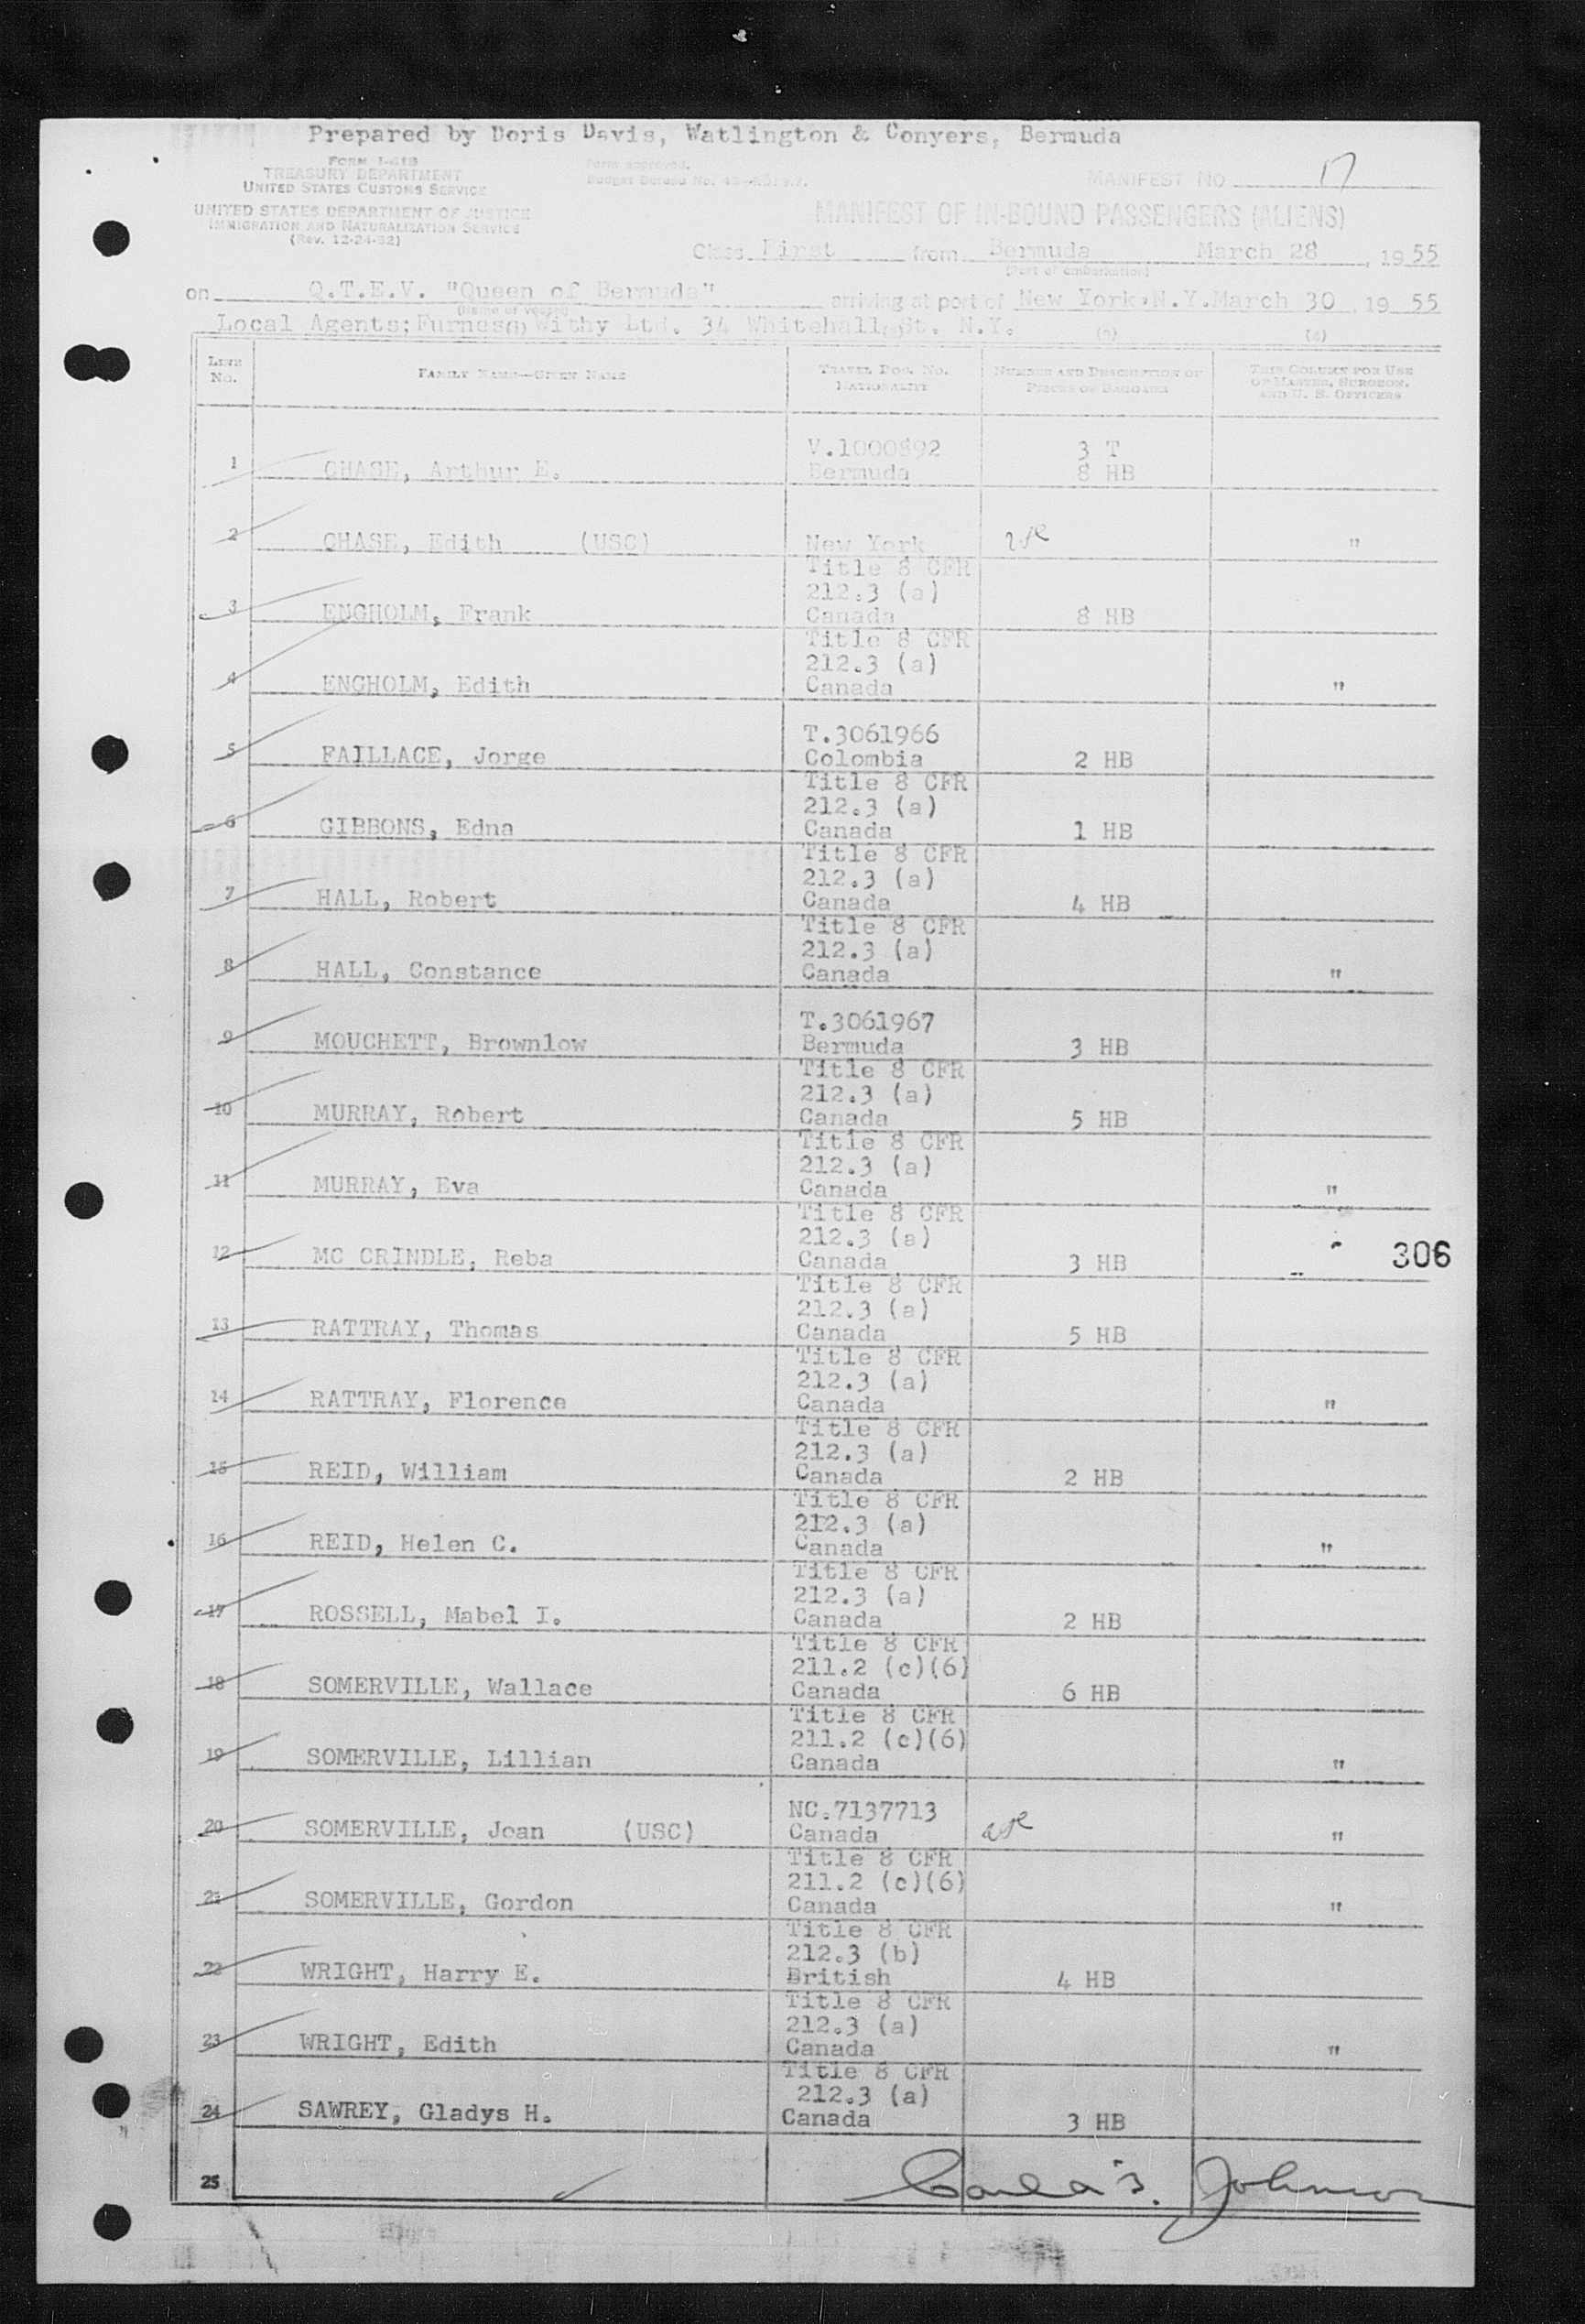 Prepared by Doris Davis, Watlington & Conyers, Bermuda
FORM I-418
TREASURY DEPARTMENT
UNITED STATES CUSTOMS SERVICE
Form approved.
Budget Bureau No.
MANIFEST NO. 17
UNITED STATES DEPARTMENT OF JUSTICE
IMMIGRATION AND NATURALIZATION SERVICE
(Rev. 12-24-52)
MANIFEST OF IN-BOUND PASSENGERS (ALIENS)
Class First from Bermuda March 28, 1955
(Port of embarkation)
on Q.T.E.V. "Queen of Bermuda" arriving at port of New York, N.Y. March 30 1955
(Name of vessel)
Local Agents; Furness Withy Ltd. 34 Whitehall St. N.Y.
(1) (2) (3) (4)
LINE No.
FAMILY NAME—GIVEN NAME
TRAVEL DOC. NO. NATIONALITY
NUMBER AND DESCRIPTION OF PIECES OF BAGGAGE
THIS COLUMN FOR USE OF MASTER, SURGEON, AND U. S. OFFICERS
V.1000892 3 T
1 CHASE, Arthur E. Bermuda 8 HB
2 CHASE, Edith (USC) New York "
Title 8 CFR
212.3 (a)
3 ENGHOLM, Frank Canada 8 HB
Title 8 CFR
212.3 (a)
4 ENGHOLM, Edith Canada "
T.3061966
5 FAILLACE, Jorge Colombia 2 HB
Title 8 CFR
212.3 (a)
6 GIBBONS, Edna Canada 1 HB
Title 8 CFR
212.3 (a)
7 HALL, Robert Canada 4 HB
Title 8 CFR
212.3 (a)
8 HALL, Constance Canada "
T.3061967
9 MOUCHETT, Brownlow Bermuda 3 HB
Title 8 CFR
212.3 (a)
10 MURRAY, Robert Canada 5 HB
Title 8 CFR
212.3 (a)
11 MURRAY, Eva Canada "
Title 8 CFR
212.3 (a)
12 MC CRINDLE, Reba Canada 3 HB 306
Title 8 CFR
212.3 (a)
13 RATTRAY, Thomas Canada 5 HB
Title 8 CFR
212.3 (a)
14 RATTRAY, Florence Canada "
Title 8 CFR
212.3 (a)
15 REID, William Canada 2 HB
Title 8 CFR
212.3 (a)
16 REID, Helen C. Canada "
Title 8 CFR
212.3 (a)
17 ROSSELL, Mabel I. Canada 2 HB
Title 8 CFR
211.2 (c)(6)
18 SOMERVILLE, Wallace Canada 6 HB
Title 8 CFR
211.2 (c)(6)
19 SOMERVILLE, Lillian Canada "
NC.7137713
20 SOMERVILLE, Joan (USC) Canada "
Title 8 CFR
211.2 (c)(6)
21 SOMERVILLE, Gordon Canada "
Title 8 CFR
212.3 (b)
22 WRIGHT, Harry E. British 4 HB
Title 8 CFR
212.3 (a)
23 WRIGHT, Edith Canada "
Title 8 CFR
212.3 (a)
24 SAWREY, Gladys H. Canada 3 HB
25 Johnson